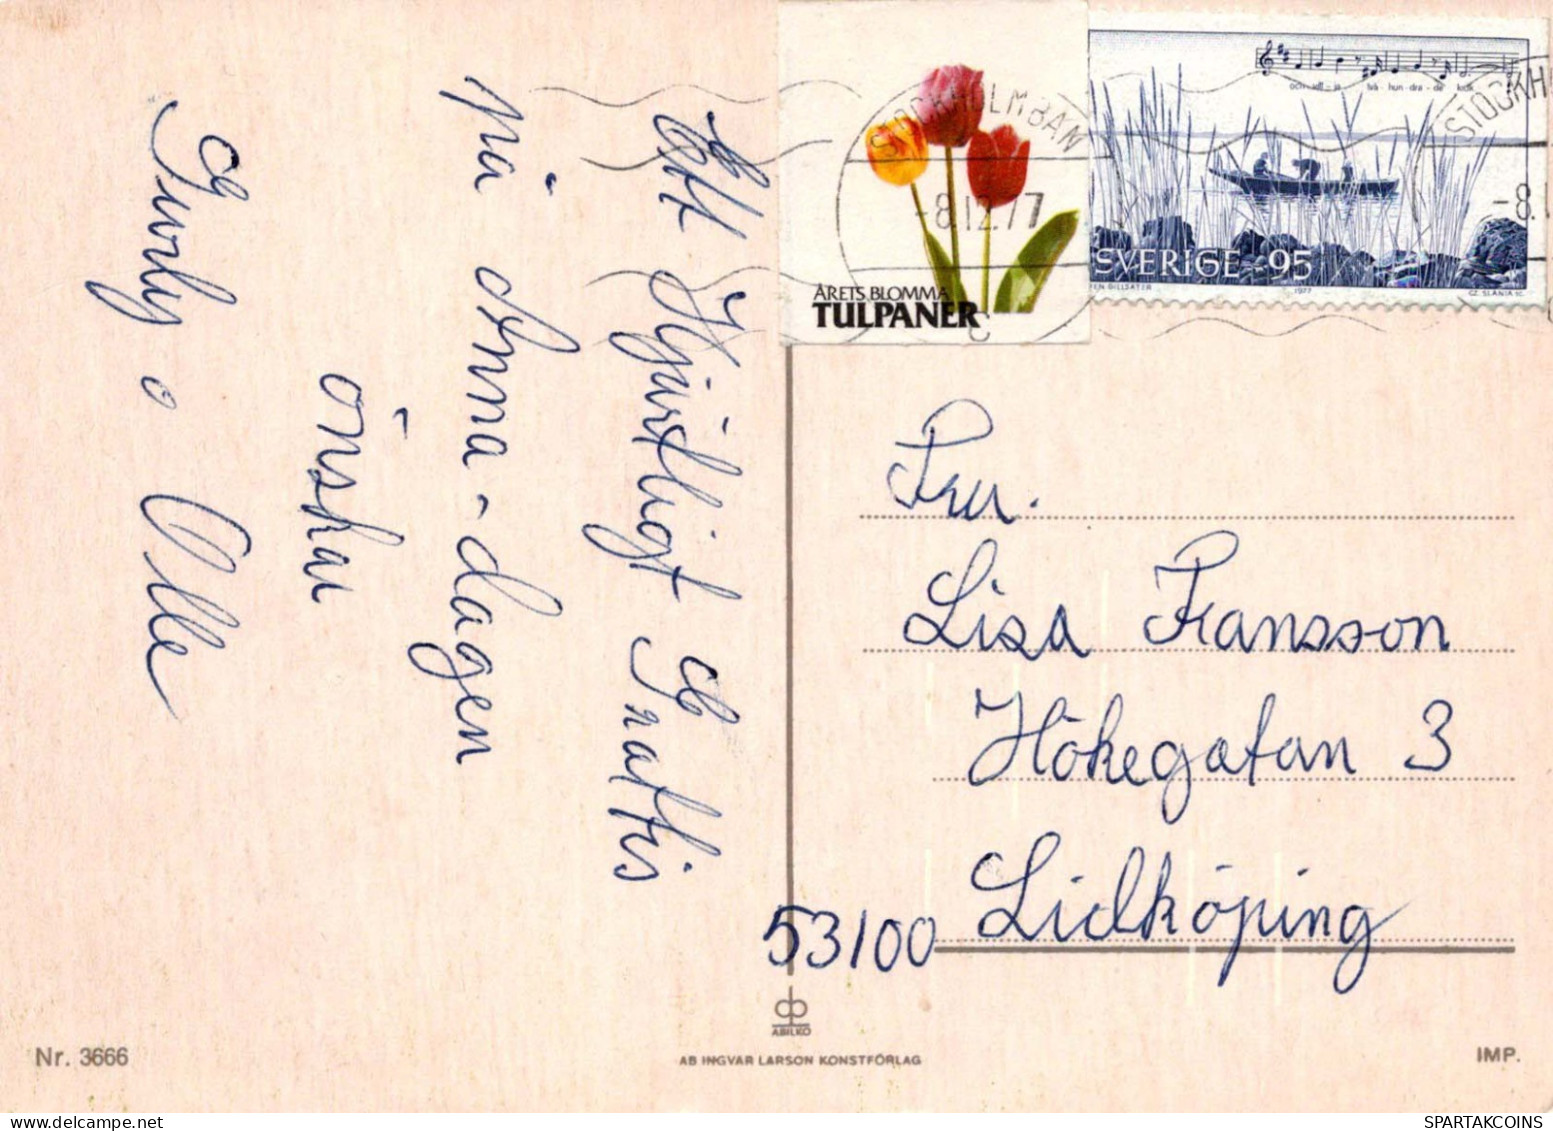 Ett Hjärtligt Grattis
på Anna-dagen
önskar
Gurly o Olle
ÅRETS BLOMMA
TULPANER
STOCKHOLM BAN
-8.12.77
SVERIGE 95
1977
CZ. SLANIA SC.
STOCKH
-8.1
Fru.
Lisa Fransson
Hökegatan 3
53100 Lidköping
ABILKO
Nr. 3666
AB INGVAR LARSON KONSTFÖRLAG
IMP.
SPARTAKCOINS